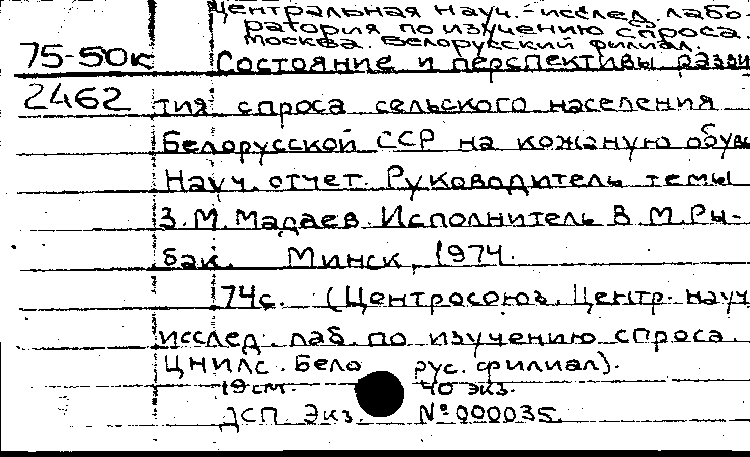 Центральная науч.-исслед. лабо
ратория по изучению спроса.
Москва. Белорусский филиал.
75-50к Состояние и перспективы разви
2462 тия спроса сельского населения
Белорусской ССР на кожаную обувь
Науч. отчет. Руководитель темы
З.М. Мадаев. Исполнитель В.М. Ры-
бак. Минск, 1974.
74с. (Центросоюз. Центр. науч
исслед. лаб. по изучению спроса.
ЦНИЛС. Бело рус. филиал).
19см. 40 экз.
ДСП. Экз. № 000035.